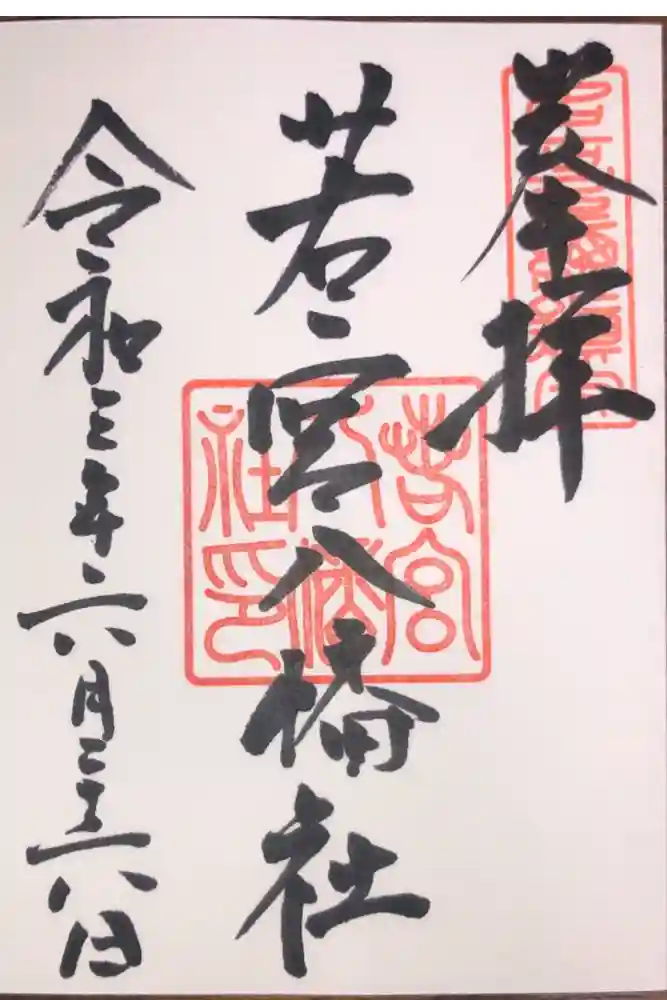 奉拝
若宮八幡社
令和三年六月二十六日
若宮
八幡
社印